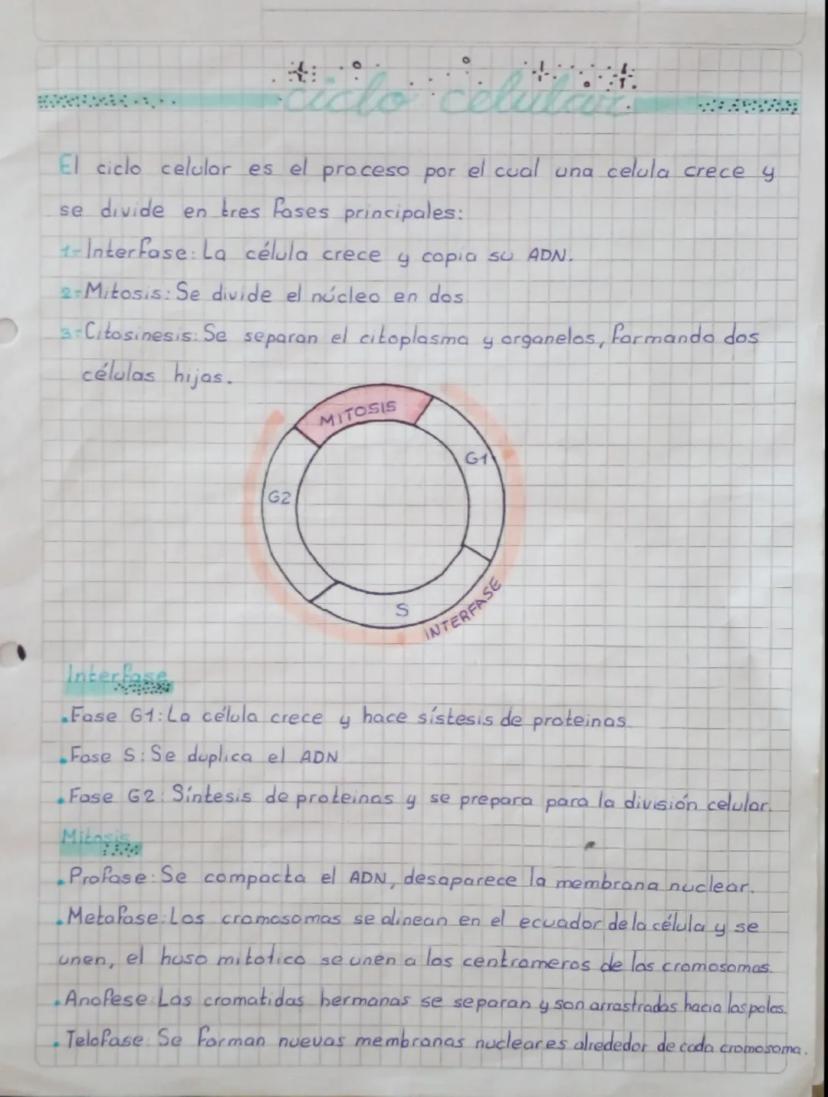 ciclo celular
El ciclo celular es el proceso por el cual una celula crece y
se divide en tres fases principales:
1-Interfase: La célula crece y copia su ADN.
2-Mitosis: Se divide el núcleo en dos
3-Citosinesis: Se separan el citoplasma y organelos, formando dos
células hijas.
MITOSIS
G1
G2
S
INTERFASE
Interfase
.Fase G1: La célula crece y hace sístesis de proteinas
.Fase S: Se duplica el ADN
.Fase G2: Síntesis de proteinas y se prepara para la división celular.
Mitosis
.Profase: Se compacta el ADN, desaparece la membrana nuclear.
.Metafase: Los cromosomas se alinean en el ecuador de la célula y se
unen, el huso mitotico se unen a los centromeros de los cromosomas.
.Anafese: Las cromatidas hermanas se separan y son arrastradas hacia los polos.
.Telofase: Se forman nuevas membranas nucleares alrededor de cada cromosoma.